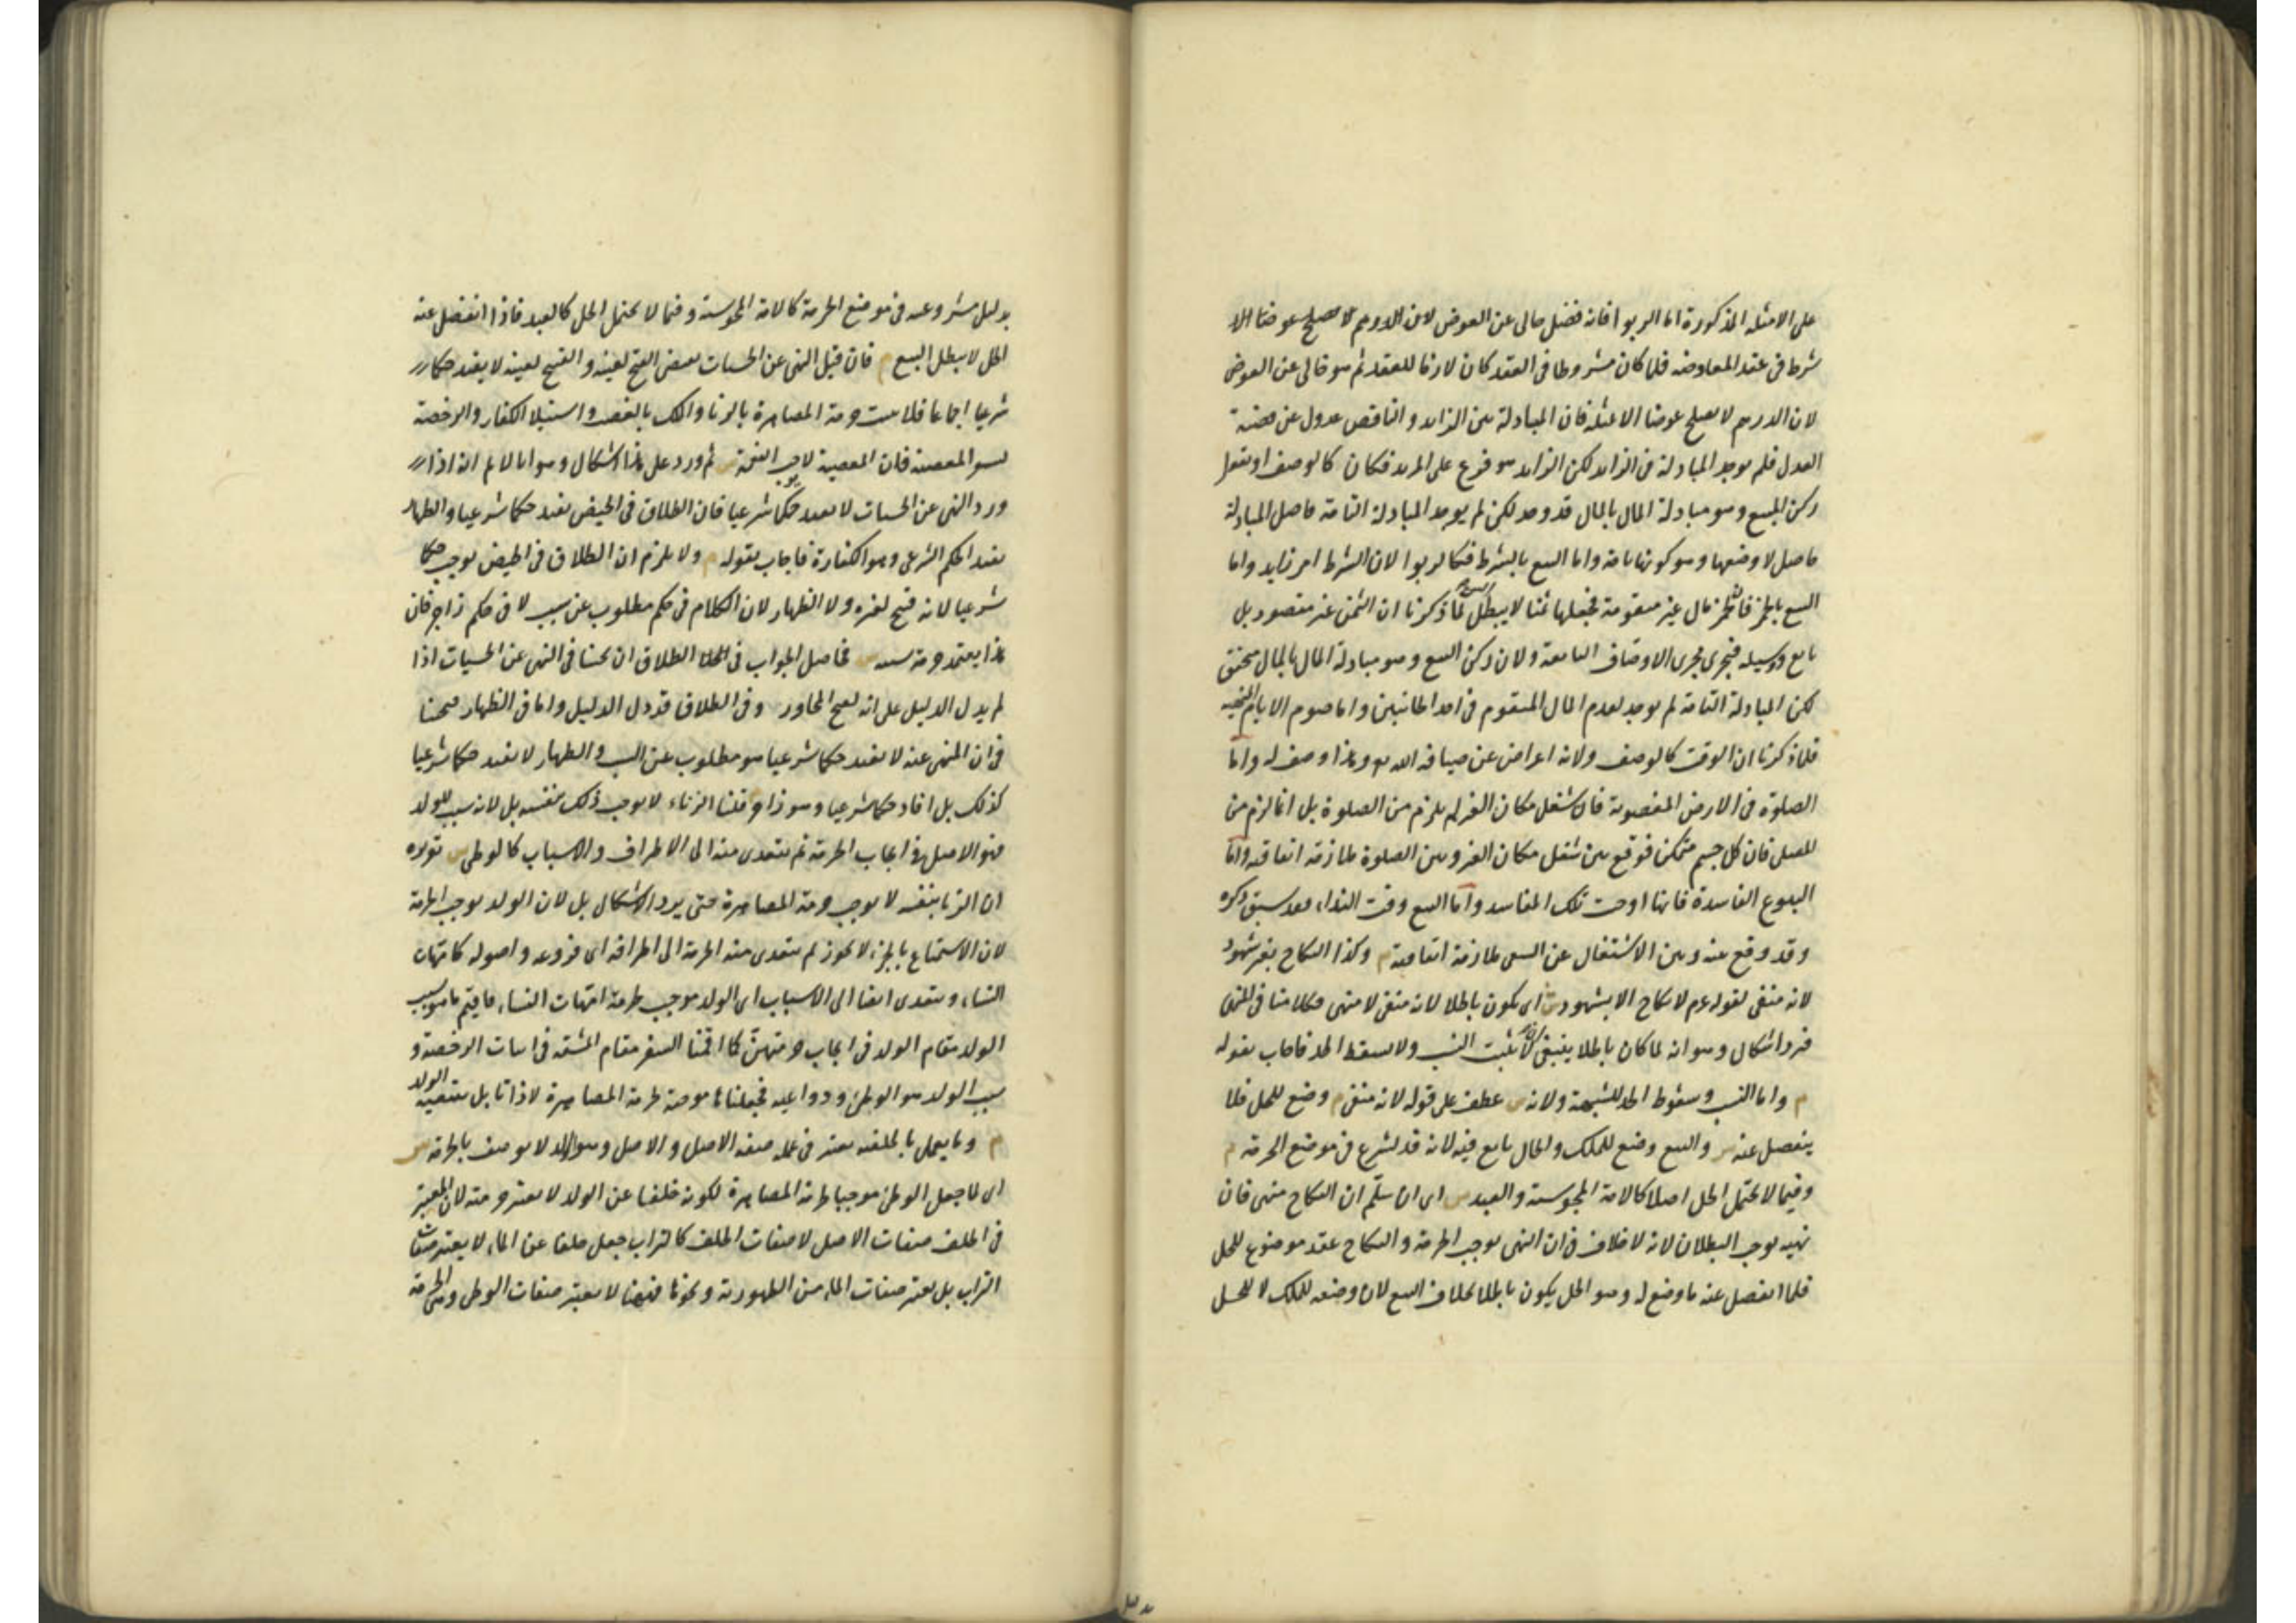 على الامثلة المذكورة اما الربوا فانه فضل خالى عن العوض لان الدرهم لا يصلح عوضا الا
شرط فى عقد المعاوضه فلما كان مشروطا فى العقد كان لازما للعقد ثم هو خالى عن العوض
لان الدرهم لا يصلح عوضا الا لمثله فان المبادلة بين الزايد و الناقص عدول عن قضية
العدل فلم يوجد المبادلة فى الزايد لكن الزايد هو فرع على المزيد فكان كالوصف او نقول
ركن البيع وهو مبادلة المال بالمال قد وجد لكن لم يوجد المبادلة التامة فاصل المبادلة
حاصل لا وصفها وهو كونها تامة واما البيع بالشرط فكالربوا لان الشرط امر زايد واما
البيع بالخمر فان الخمر مال غير متقومة فجعلها ثمنا لا يبطل البيع لما ذكرنا ان الثمن غير مقصود بل
تابع ووسيلة فيجرى مجرى الاوصاف التابعة ولان ركن البيع وهو مبادلة المال بالمال متحقق
لكن المبادلة التامة لم يوجد لعدم المال المتقوم فى احد الجانبين واما صوم الايام المنهية
فلما ذكرنا ان الوقت كالوصف ولانه اعراض عن ضيافة الله تع وهذا وصف له واما
الصلوة فى الارض المغصوبة فان شغل مكان الغير لم يلزم من الصلوة بل انما لزم من
المصلى فان كل جسم متمكن فوقع بين شغل مكان الغير وبين الصلوة ملازمة اتفاقية واما
البيوع الفاسدة فانها اوجبت تلك المفاسد واما البيع وقت النداء فقد سبق ذكره
وقد وقع عنه وبين الاشتغال عن السعى ملازمة اتفاقية م وكذا النكاح بغير شهود
لانه منفى لقوله عم لا نكاح الا بشهود ش اى يكون باطلا لانه منفى لا منهى وكلامنا فى المنهى
فيرد اشكال وهو انه لما كان باطلا ينبغى ان لا يثبت النسب ولا يسقط الحد فاجاب بقوله
م واما النسب وسقوط الحد للشبهة ولانه ش عطف على قوله لانه منفى م وضع للحل فلا
ينفصل عنه ش والبيع وضع للملك والحل تابع فيه لانه قد يشرع فى موضع الحرمة م
وفيما لا يحتمل الحل اصلا كالامة المجوسية والعبد ش اى ان سلم ان النكاح منهى فان
نهيه يوجب البطلان لانه لا خلاف فى ان النهى يوجب الحرمة والنكاح عقد موضوع للحل
فلما انفصل عنه ما وضع له وهو الحل يكون باطلا بخلاف البيع لان وضعه للملك لا للحل
بدليل
بدليل مشروعيته فى موضع الحرمة كالامة المجوسية وفيما لا يحتمل الحل كالعبد فاذا انفصل عنه
الحل لا يبطل البيع م فان قيل النهى عن الحسيات يقتضى القبح لعينه والقبيح لعينه لا يفيد حكما
شرعيا اجماعا فلا يثبت حرمة المصاهرة بالزنا والملك بالغصب واستيلا الكفار والرخصة
لسفر المعصية فان المعصية لا توجب النعمة ش ثم ورد على هذا اشكال وهو انا لا نم انه اذا
ورد النهى عن الحسيات لا يفيد حكما شرعيا فان الطلاق فى الحيض يفيد حكما شرعيا والظهار
يفيد الحكم الشرعى وهو الكفارة فاجاب بقوله م ولا يلزم ان الطلاق فى الحيض يوجب حكما
شرعيا لانه قبيح لغيره ولا الظهار لان الكلام فى حكم مطلوب عن سبب لا فى حكم زاجر فان
هذا يعتمد حرمة سببه ش فحاصل الجواب فى الطلاق ان بحثنا فى النهى عن الحسيات اذا
لم يدل الدليل على انه لقبح المجاور وفى الطلاق قد دل الدليل واما فى الظهار فبحثنا
فى ان المنهى عنه لا يفيد حكما شرعيا هو مطلوب عن السبب والظهار لا يفيد حكما شرعيا
كذلك بل افاد حكما شرعيا وهو زاجر م قلنا الزناء لا يوجب ذلك بنفسه بل لانه سبب للولد
فهو الاصل فى ايجاب الحرمة ثم يتعدى منه الى الاطراف والاسباب كالوطى ش تقريره
ان الزنا بنفسه لا يوجب حرمة المصاهرة حتى يرد الاشكال بل لان الولد يوجب الحرمة
لان الاستمتاع بالجزء لا يجوز ثم يتعدى منه الحرمة الى اطرافه اى فروعه واصوله كامهات
النساء ويتعدى ايضا الى الاسباب اى الولد موجب لحرمة امهات النساء فاقيم ما هو سبب
الولد مقام الولد فى ايجاب حرمتهن كما اقمنا السفر مقام المشقة فى اثبات الرخصة و
سبب الولد هو الوطئ ودواعيه فجعلناها موجبة لحرمة المصاهرة لا ذاتا بل بتبعية الولد
م وما يعمل بالخلفية يعتبر فى عمله صفة الاصل والاصل وهو الولد لا يوصف بالحرمة ش
اى لما جعل الوطئ موجبا لحرمة المصاهرة لكونه خلفا عن الولد لا يعتبر حرمته لان المعتبر
فى الخلف صفات الاصل لا صفات الخلف كالتراب جعل خلفا عن الماء لا يعتبر صفات
التراب بل يعتبر صفات الماء من الطهورية ونحوها فههنا لا يعتبر صفات الوطى وهى الحرمة